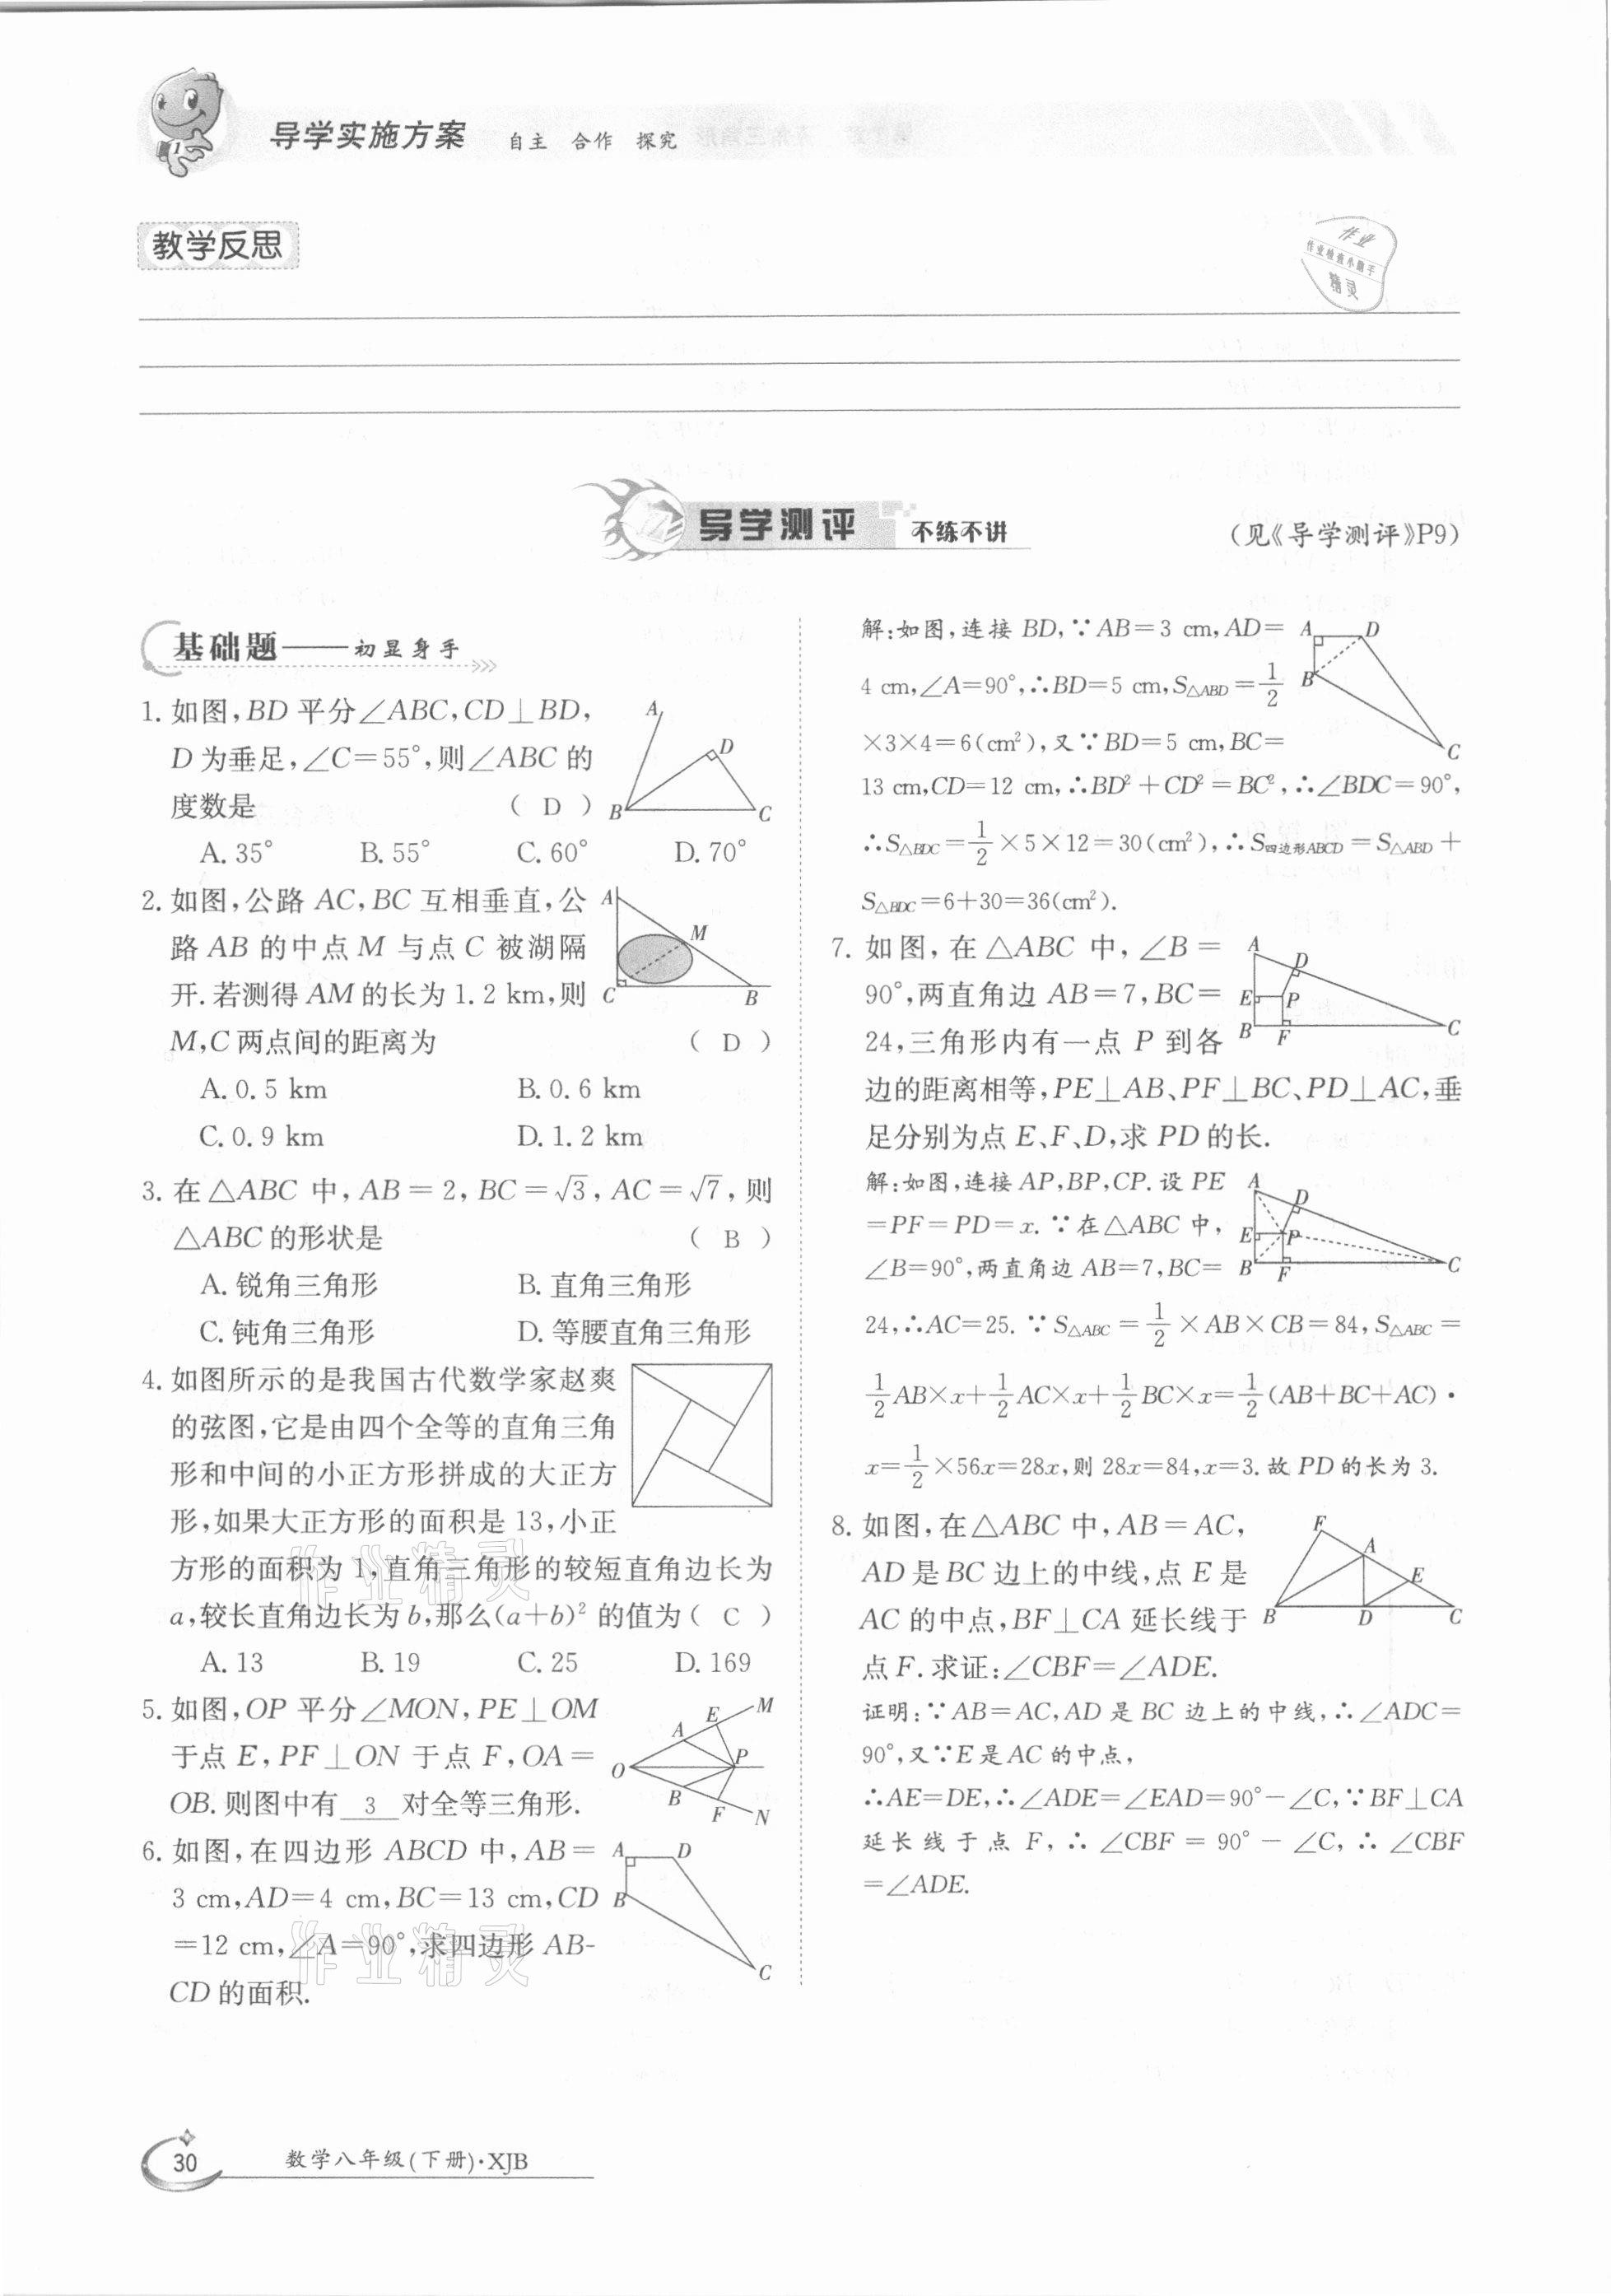 导学实施方案 自主 合作 探究
教学反思
作业
作业检查小助手
精灵
导学测评 不练不讲 (见《导学测评》P9)
基础题——初显身手
1. 如图,BD 平分∠ABC,CD⊥BD,
D 为垂足,∠C=55°,则∠ABC 的
度数是 ( D )
A. 35° B. 55° C. 60° D. 70°
A
D
B
C
2. 如图,公路 AC,BC 互相垂直,公
路 AB 的中点 M 与点 C 被湖隔
开. 若测得 AM 的长为 1. 2 km,则
M,C 两点间的距离为 ( D )
A. 0. 5 km B. 0. 6 km
C. 0. 9 km D. 1. 2 km
A
M
C
B
3. 在△ABC 中,AB=2,BC=√3,AC=√7,则
△ABC 的形状是 ( B )
A. 锐角三角形 B. 直角三角形
C. 钝角三角形 D. 等腰直角三角形
4. 如图所示的是我国古代数学家赵爽
的弦图,它是由四个全等的直角三角
形和中间的小正方形拼成的大正方
形,如果大正方形的面积是 13,小正
方形的面积为 1,直角三角形的较短直角边长为
a,较长直角边长为 b,那么(a+b)² 的值为( C )
A. 13 B. 19 C. 25 D. 169
5. 如图,OP 平分∠MON,PE⊥OM
于点 E,PF⊥ON 于点 F,OA=
OB. 则图中有 3 对全等三角形.
M
E
A
P
O
B
F
N
6. 如图,在四边形 ABCD 中,AB=
3 cm,AD=4 cm,BC=13 cm,CD
=12 cm,∠A=90°,求四边形 AB-
CD 的面积.
A
D
B
C
作业精灵
作业精灵
解:如图,连接 BD,∵AB=3 cm,AD=
4 cm,∠A=90°,∴BD=5 cm,S△ABD=1/2
×3×4=6(cm²),又∵BD=5 cm,BC=
13 cm,CD=12 cm,∴BD²+CD²=BC²,∴∠BDC=90°,
∴S△BDC=1/2×5×12=30(cm²),∴S四边形ABCD=S△ABD+
S△BDC=6+30=36(cm²).
A
D
B
C
7. 如图,在△ABC 中,∠B=
90°,两直角边 AB=7,BC=
24,三角形内有一点 P 到各
边的距离相等,PE⊥AB、PF⊥BC、PD⊥AC,垂
足分别为点 E、F、D,求 PD 的长.
A
D
E
P
B
F
C
解:如图,连接 AP,BP,CP. 设 PE
=PF=PD=x. ∵在△ABC 中,
∠B=90°,两直角边 AB=7,BC=
24,∴AC=25. ∵S△ABC=1/2×AB×CB=84,S△ABC=
1/2AB×x+1/2AC×x+1/2BC×x=1/2(AB+BC+AC)·
x=1/2×56x=28x,则 28x=84,x=3. 故 PD 的长为 3.
A
D
E
P
B
F
C
8. 如图,在△ABC 中,AB=AC,
AD 是 BC 边上的中线,点 E 是
AC 的中点,BF⊥CA 延长线于
点 F. 求证:∠CBF=∠ADE.
F
A
E
B
D
C
证明:∵AB=AC,AD 是 BC 边上的中线,∴∠ADC=
90°,又∵E 是 AC 的中点,
∴AE=DE,∴∠ADE=∠EAD=90°-∠C,∵BF⊥CA
延长线于点 F,∴∠CBF=90°-∠C,∴∠CBF
=∠ADE.
30 数学八年级(下册)·XJB